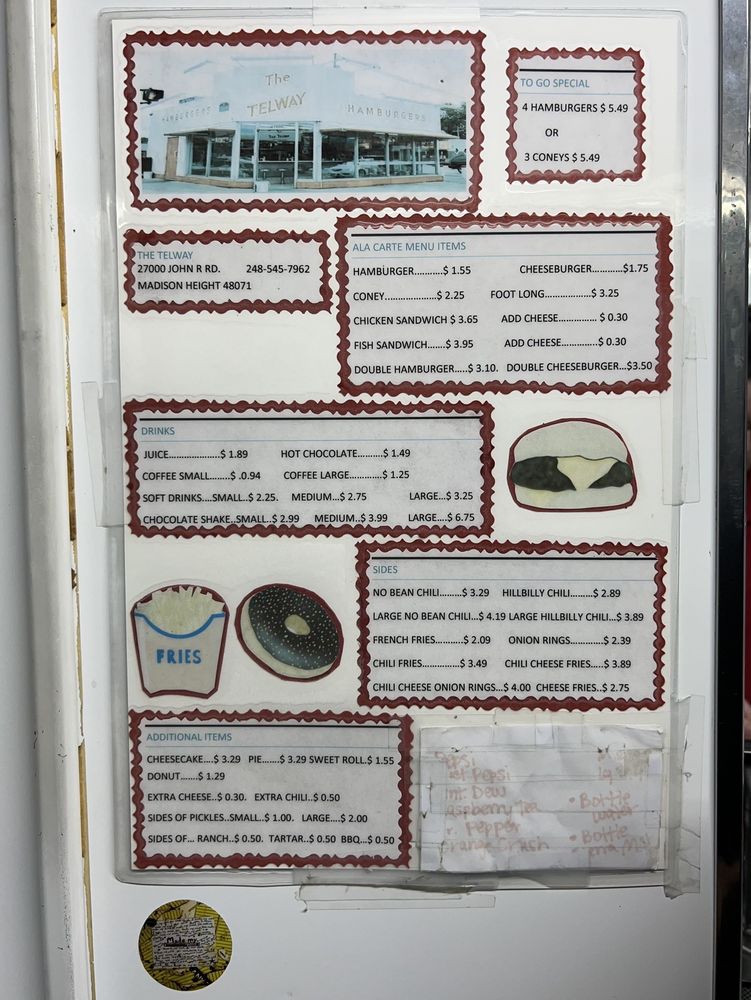 The
TELWAY
HAMBURGERS
HAMBURGERS
TO GO SPECIAL
4 HAMBURGERS $ 5.49
OR
3 CONEYS $ 5.49
THE TELWAY
27000 JOHN R RD. 248-545-7962
MADISON HEIGHT 48071
ALA CARTE MENU ITEMS
HAMBURGER...........$ 1.55 CHEESEBURGER............$1.75
CONEY.....................$ 2.25 FOOT LONG..................$ 3.25
CHICKEN SANDWICH $ 3.65 ADD CHEESE.............. $ 0.30
FISH SANDWICH.......$ 3.95 ADD CHEESE..............$ 0.30
DOUBLE HAMBURGER.....$ 3.10. DOUBLE CHEESEBURGER...$3.50
DRINKS
JUICE....................$ 1.89 HOT CHOCOLATE..........$ 1.49
COFFEE SMALL........$ .0.94 COFFEE LARGE..........$ 1.25
SOFT DRINKS....SMALL..$ 2.25. MEDIUM...$ 2.75 LARGE...$ 3.25
CHOCOLATE SHAKE..SMALL..$ 2.99 MEDIUM..$ 3.99 LARGE....$ 6.75
SIDES
NO BEAN CHILI.........$ 3.29 HILLBILLY CHILI.......$ 2.89
LARGE NO BEAN CHILI...$ 4.19 LARGE HILLBILLY CHILI...$ 3.89
FRENCH FRIES..........$ 2.09 ONION RINGS...........$ 2.39
CHILI FRIES..............$ 3.49 CHILI CHEESE FRIES.....$ 3.89
CHILI CHEESE ONION RINGS...$ 4.00 CHEESE FRIES..$ 2.75
FRIES
ADDITIONAL ITEMS
CHEESECAKE....$ 3.29 PIE.....$ 3.29 SWEET ROLL.$ 1.55
DONUT.......$ 1.29
EXTRA CHEESE..$ 0.30. EXTRA CHILI..$ 0.50
SIDES OF PICKLES..SMALL..$ 1.00. LARGE....$ 2.00
SIDES OF... RANCH..$ 0.50. TARTAR..$ 0.50 BBQ...$ 0.50
Pepsi
Pepsi
Dew
Tea
Pepper
• Bottle
water
Orange Crush
• Bottle
Made my